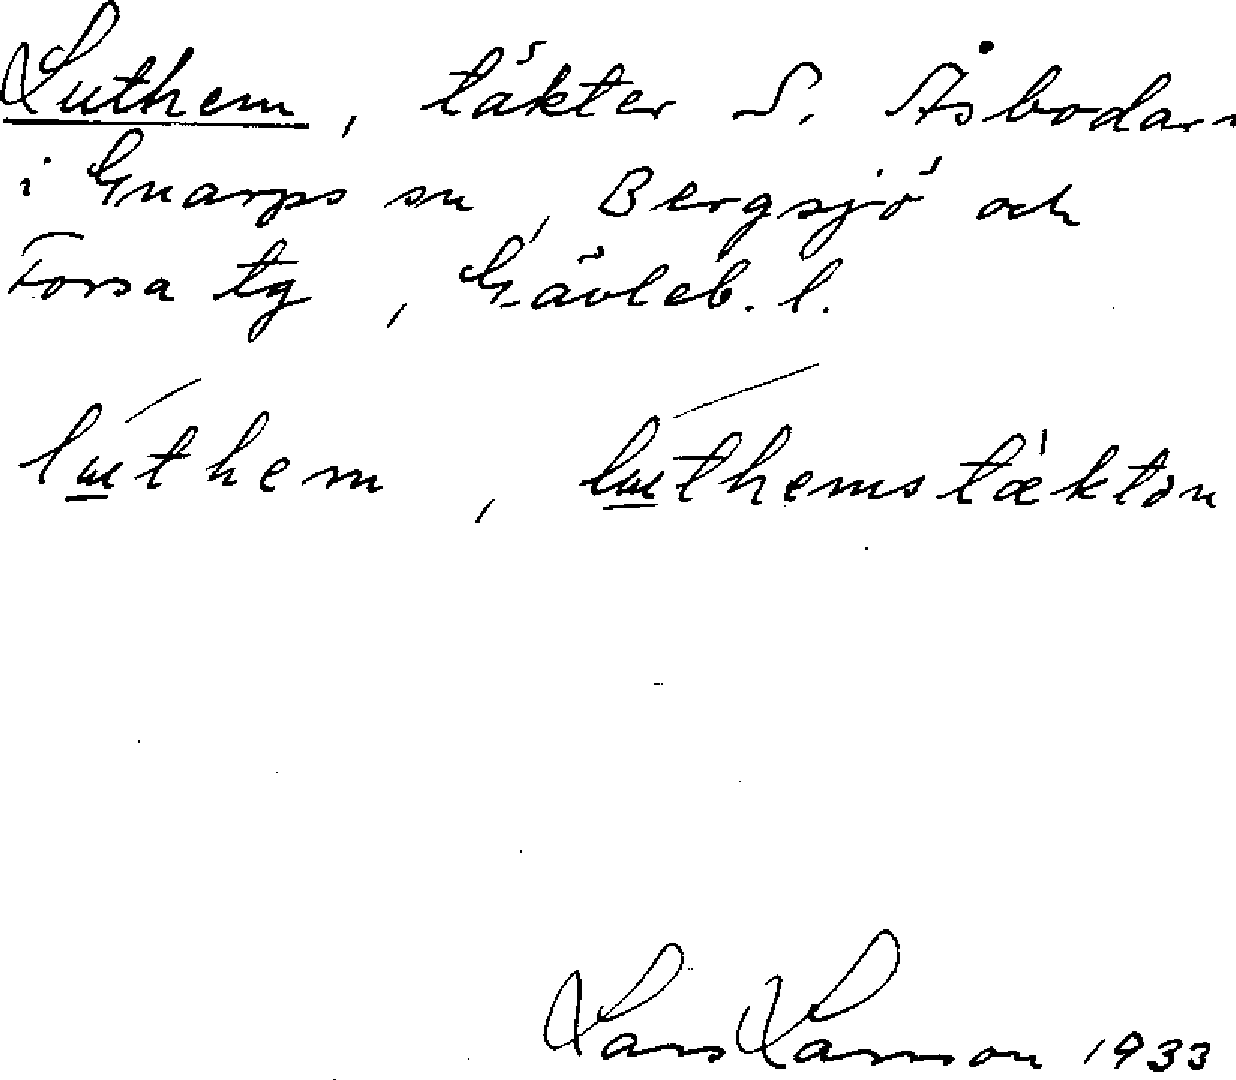 Luthem, täkter S. Åsbodarn
i Gnarps sn, Bergsjö och
Forsa tg, Gävleb. l.
lɯthem, lɯthemstæktɘn
Lars Larsson 1933